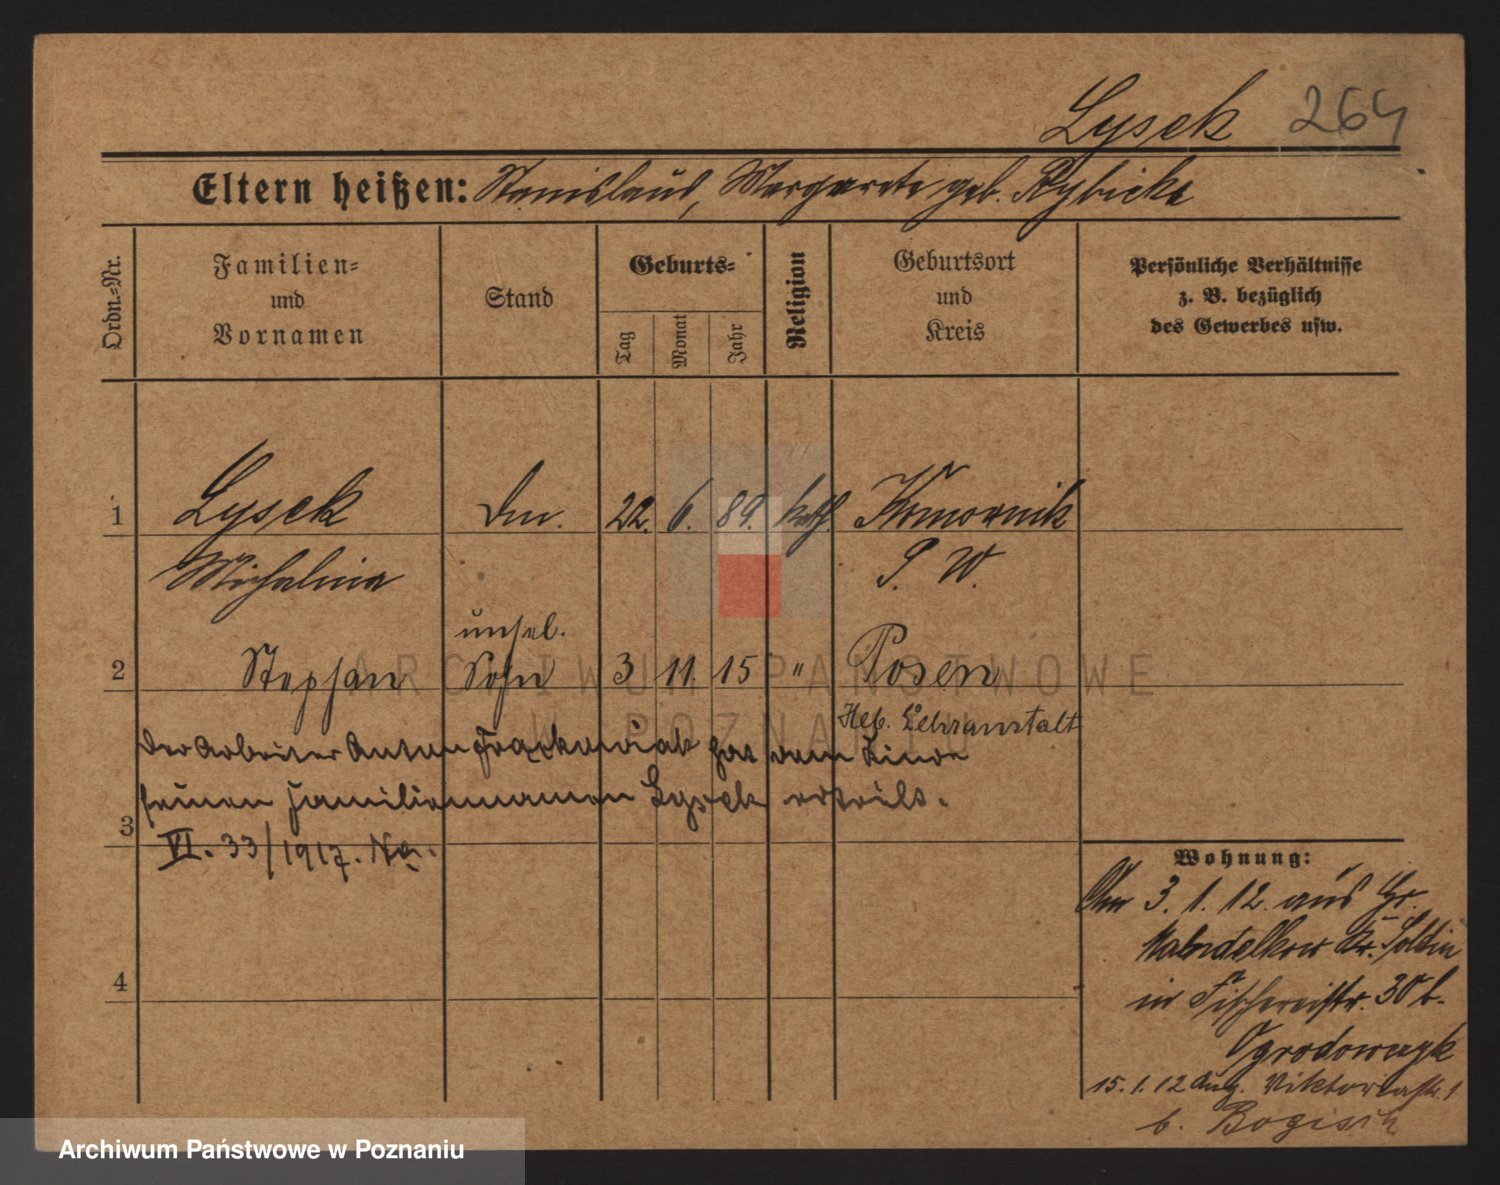 Lysek 264
Eltern heißen: Stanislaus, Margarete geb. Rybicka
Ordn.=Nr.
Familien=
und
Vornamen
Stand
Geburts=
Tag
Monat
Jahr
Religion
Geburtsort
und
Kreis
Persönliche Verhältnisse
z. B. bezüglich
des Gewerbes usw.
1 Lysek 22. 6. 89. kath. Komornik
Michalina P. W.
unehel.
2 Stephan Sohn 3 11. 15 " Posen
Heb. Lehranstalt
Der Arbeiter Anton Frąckowiak hat dem Kinde
seinen Familiennamen Lysek erteilt.
3
VI. 33/1917.
4
Wohnung:
3. 1. 12. aus Gr.
Kr. Soldin
in Fischereistr. 30 b.
Ogrodowczyk
15. 1. 12 Aug. Viktoriastr. 1
b. Bogisch
ARCHIWUM PAŃSTWOWE
W POZNANIU
Archiwum Państwowe w Poznaniu